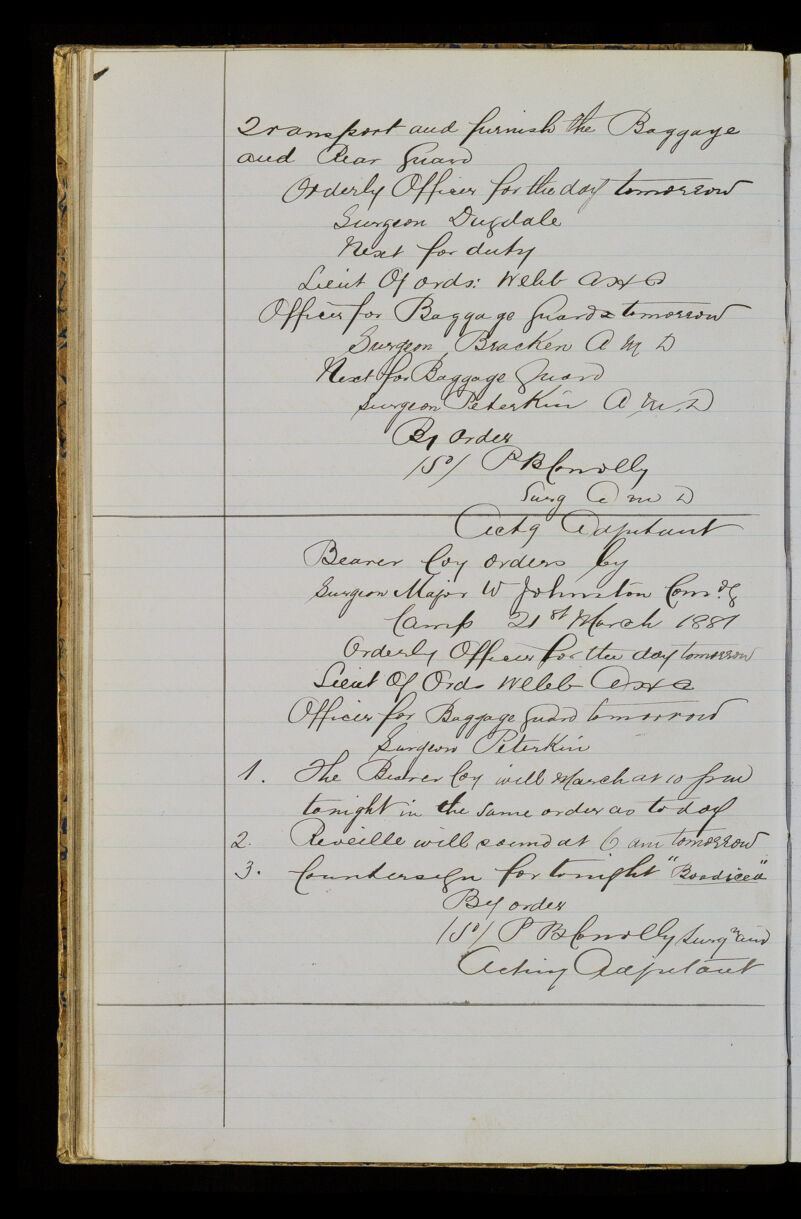 Transport and furnish the Baggage
and Rear Guard
Orderly Officer for the day tomorrow
Surgeon Dugdale
Next for duty
Lieut Of Ords: Webb
Officer for Baggage Guards tomorrow
Surgeon Bracken A M D
Next for Baggage Guard
Surgeon Peterkin A M. D
By order
/Sd/ P B Connolly
Surg A M D
Actg Adjutant
Bearer Coy orders by
Surgeon Major W Johnston Comdg
Camp 21st March 1881
Orderly Officer for the day tomorrow
Lieut Of Ords Webb
Officer for Baggage Guard tomorrow
Surgeon Peterkin
1. The Bearer Coy will March at 10 pm
tonight in the same order as today
2. Reveille will sound at 6 am tomorrow
3. Countersign for tonight "Boadicea"
By order
/Sd/ P B Connolly Surgn
Acting Adjutant